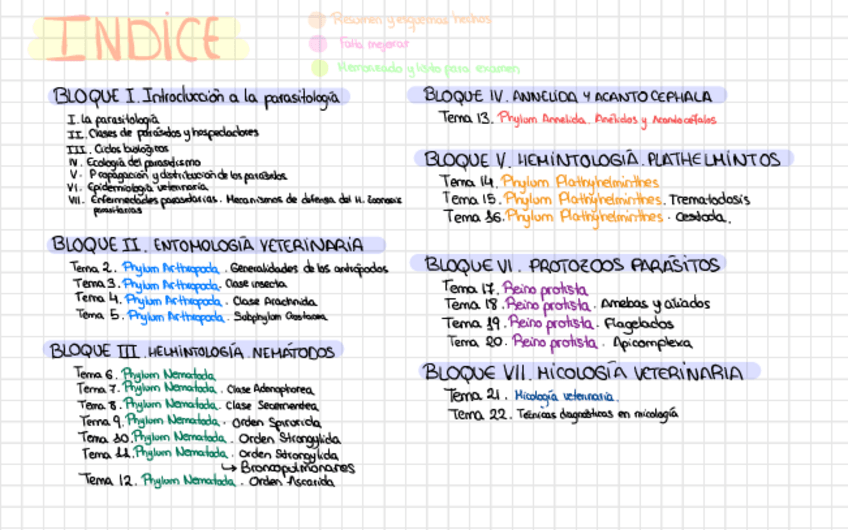 INDICE
Resumen y esquemas hechos
Falta mejorar
Memorizado y listo para examen
BLOQUE I. Introducción a la parasitología
I. La parasitología
II. Clases de parásitos y hospedadores
III. Ciclos biológicos
IV. Ecología del parasitismo
V. Propagación y distribución de los parásitos
VI. Epidemiología veterinaria
VII. Enfermedades parasitarias. Mecanismos de defensa del H. Zoonosis
parasitarias
BLOQUE II. ENTOMOLOGÍA VETERINARIA
Tema 2. Phylum Arthropoda. Generalidades de los antrópodos
Tema 3. Phylum Arthropoda. Clase insecta
Tema 4. Phylum Arthropoda. Clase Arachnida
Tema 5. Phylum Arthropoda. Subphylum
BLOQUE III. HELMINTOLOGÍA. NEMÁTODOS
Tema 6. Phylum Nematoda
Tema 7. Phylum Nematoda. Clase Adenophorea
Tema 8. Phylum Nematoda. Clase Secernentea
Tema 9. Phylum Nematoda. Orden Spirurida
Tema 10. Phylum Nematoda. Orden Strongylida
Tema 11. Phylum Nematoda. Orden Strongylida
↳ Broncopulmonares
Tema 12. Phylum Nematoda. Orden Ascarida
BLOQUE IV. ANNELIDA Y ACANTOCEPHALA
Tema 13. Phylum Annelida. Anélidos y Acantocéfalos
BLOQUE V. HEMINTOLOGÍA. PLATHELMINTOS
Tema 14. Phylum Plathyhelminthes
Tema 15. Phylum Plathyhelminthes. Trematodosis
Tema 16. Phylum Plathyhelminthes. Cestoda.
BLOQUE VI. PROTOZOOS PARÁSITOS
Tema 17. Reino protista
Tema 18. Reino protista. Amebas y aliados
Tema 19. Reino protista. Flagelados
Tema 20. Reino protista. Apicomplexa
BLOQUE VII. MICOLOGÍA VETERINARIA
Tema 21. Micología veterinaria.
Tema 22. Técnicas diagnósticas en micología